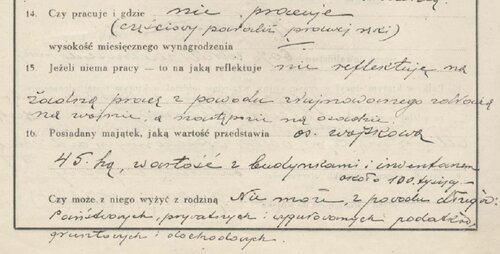 14. Czy pracuje i gdzie nie pracuje
(częściowy paraliż prawej ręki)
wysokość miesięcznego wynagrodzenia —
15. Jeżeli niema pracy — to na jaką reflektuje nie reflektuję na
żadną pracę z powodu zrujnowanego zdrowia
na wojnie, a następnie na osadzie.
16. Posiadany majątek, jaką wartość przedstawia os. wojskowa
45. ha, wartość z budynkami i inwentarzem
około 100. tysięcy —
Czy może z niego wyżyć z rodziną Nie może, z powodu długów:
Państwowych, prywatnych i wygórowanych podatków
gruntowych i dochodowych.